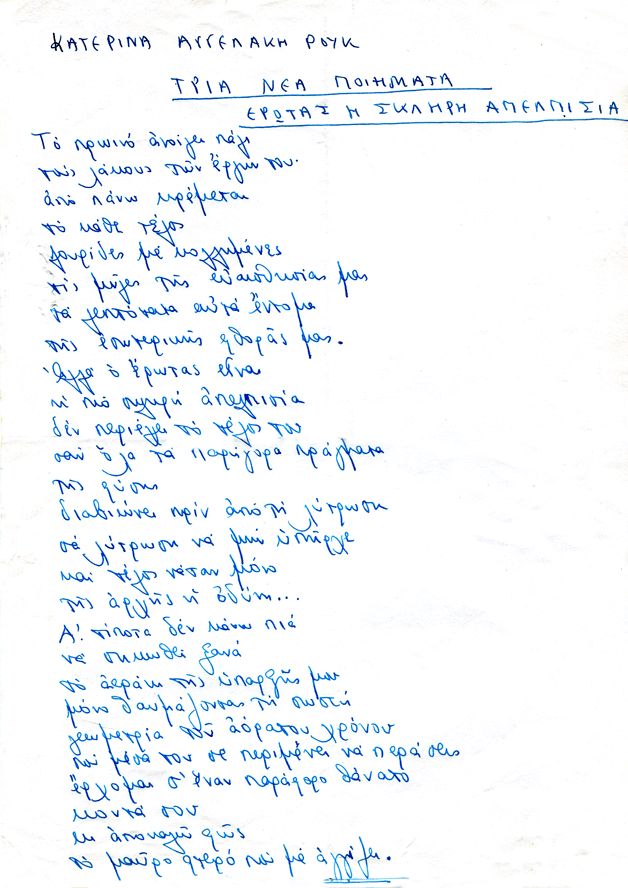 ΚΑΤΕΡΙΝΑ ΑΓΓΕΛΑΚΗ ΡΟΥΚ
ΤΡΙΑ ΝΕΑ ΠΟΙΗΜΑΤΑ
ΕΡΩΤΑΣ Η ΣΚΛΗΡΗ ΑΠΕΛΠΙΣΙΑ
Τό πρωινό ἀνοίγει πάλι
τούς λάκκους τῶν ἔργων του·
ἀπό πάνω κρέμεται
τό κάθε τέλος
λουρίδες μέ κολλημένες
τίς μύγες τῆς εὐαισθησίας μας
τά λεπτότατα αὐτά ἔντομα
τῆς ἐσωτερικῆς φθορᾶς μας.
Ἀλλά ὁ ἔρωτας εἶναι
ἡ πιό σκληρή ἀπελπισία
δέν περιέχει τό τέλος του
σάν ὅλα τά παρήγορα πράγματα
τῆς φύσης
διαβιώνει πρίν ἀπό τή λύτρωση
σά λύτρωση νά μήν ὑπῆρχε
καί τέλος νἆταν μόνο
τῆς ἀρχῆς ἡ ὀδύνη...
Α! τίποτα δέν κάνω πιά
νά σηκωθεῖ ξανά
τό ἀεράκι τῆς ὑπαρξῆς μου
μόνο θαυμάζοντας τή σωστή
γεωμετρία τοῦ ἀόρατου χρόνου
πού μέσα του σέ περιμένει νά περάσεις
ἔρχομαι σ' ἕναν παράφορο θάνατο
κοντά σου
κι ἀποκαλῶ φῶς
τό μαῦρο φτερό πού μέ ἀγγίζει.